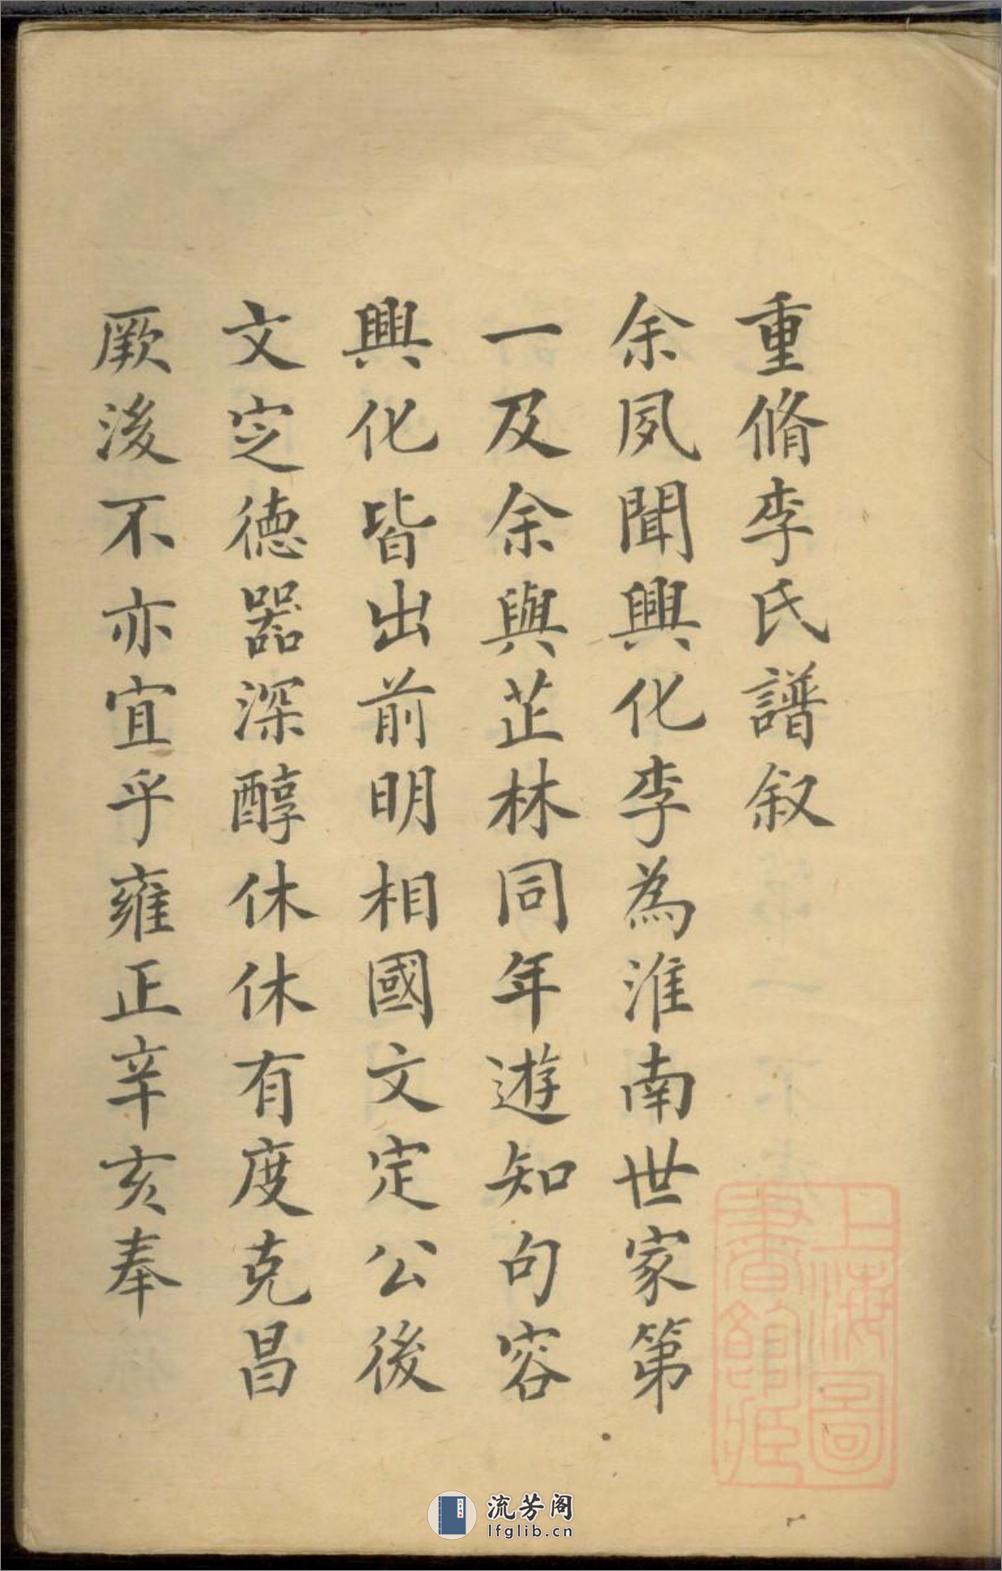 重脩李氏譜叙
余夙聞興化李為淮南世家第
一及余與芷林同年遊知句容
興化皆出前明相國文定公後
文定德器深醇休休有度克昌
厥後不亦宜乎雍正辛亥奉
上海圖
書館藏
流芳阁
lfglib.cn